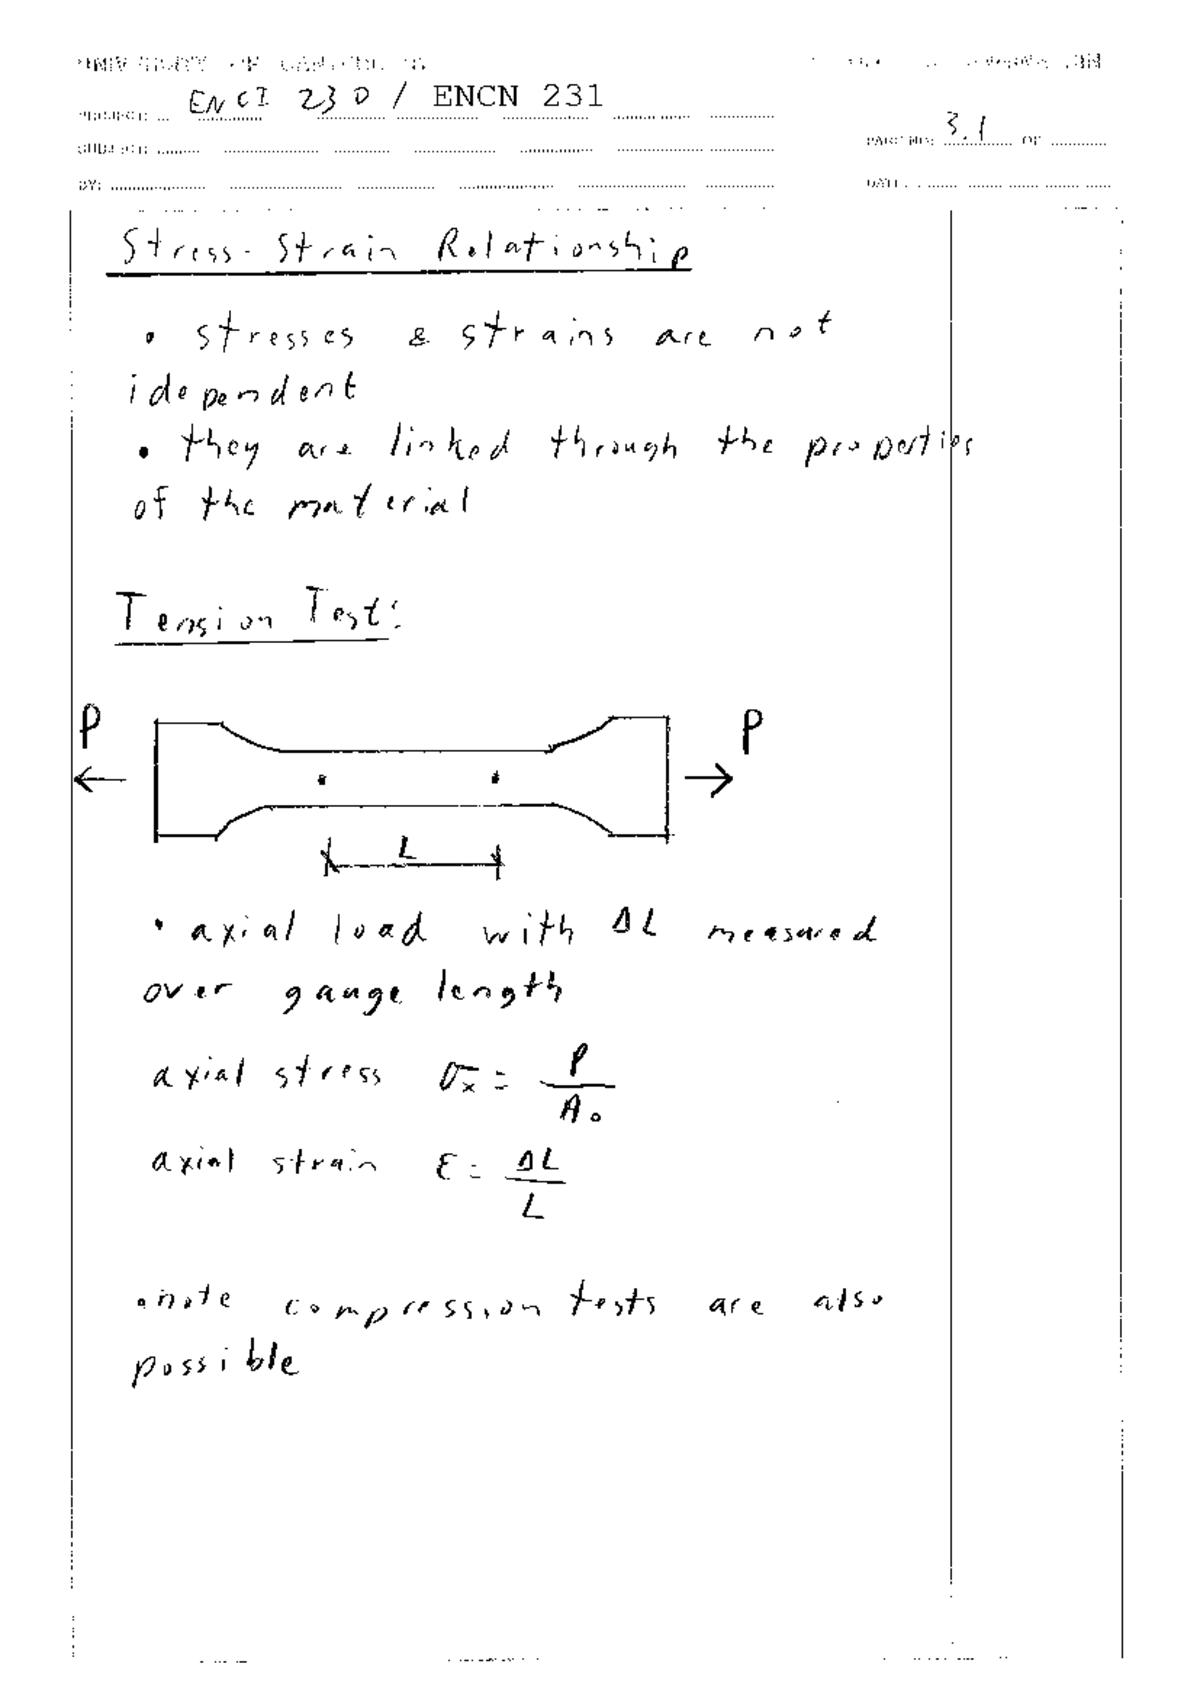 ENCI 230 / ENCN 231
3.1
BY:
Stress-Strain Relationship
• stresses & strains are not
idependent
• they are linked through the properties
of the material
Tension Test:
P
P
L
• axial load with ΔL measured
over gauge length
axial stress σx = P/A₀
axial strain ε = ΔL/L
• note compression tests are also
possible